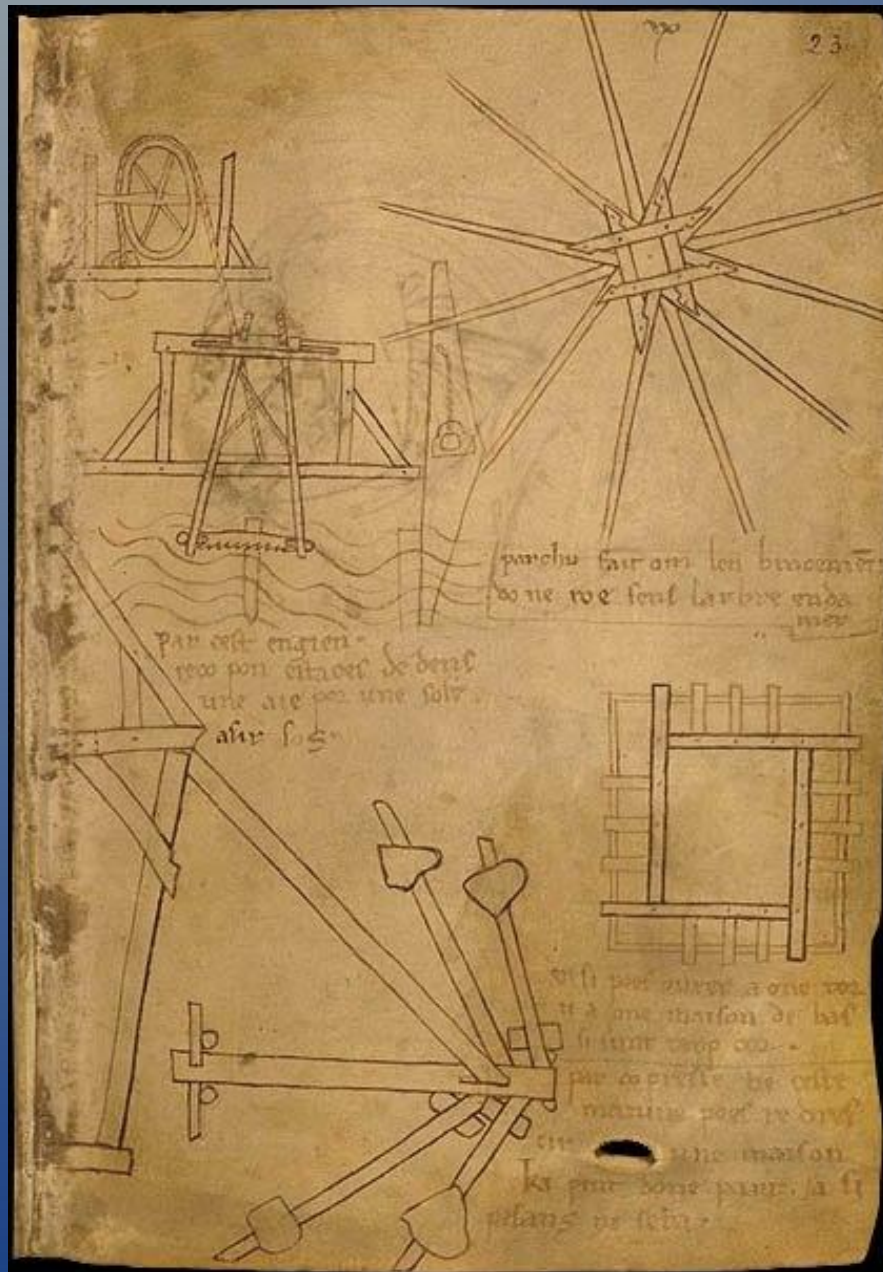 23
par chu fait om les bracemēs
do ne roe sens larbre enda
mer
par cest engien
recopon estaces de dens
une aie por une sole
asir sor
vesci poes ovrer a one tor
u a one maison de bas
si sunt trop cor
par de ceste
maniere poes redre
cir une maison
ki pent done part. ja si
pesans ne sera